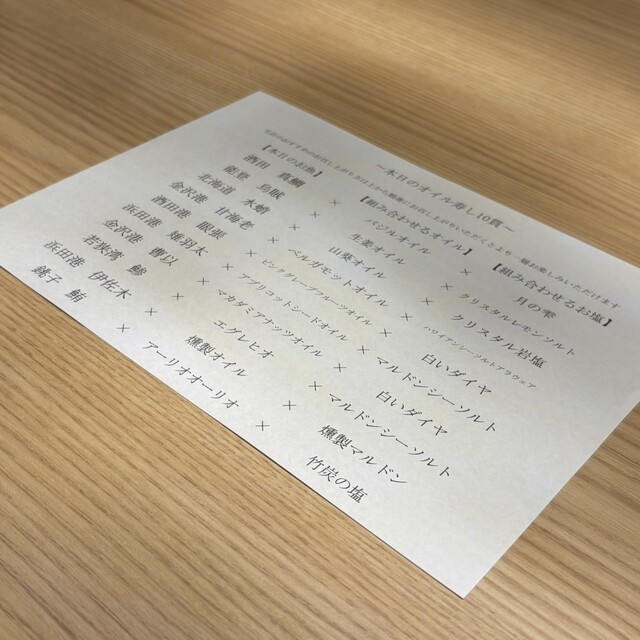 ~本日のオイル寿し10貫~
お召し上がり方は上から順番にお召し上がりいただくとより一層お楽しみいただけます
【本日のお魚】 【組み合わせるオイル】 【組み合わせるお塩】
酒田 真鯛 × バジルオイル × 月の雫
能登 烏賊 × 生姜オイル × クリスタルレモンソルト
北海道 水蛸 × 山葵オイル × クリスタル岩塩
金沢港 甘海老 × ベルガモットオイル × ハワイアンソルトアラウェア
酒田港 眼張 × ピンクグレープフルーツオイル × 白いダイヤ
浜田港 × アプリコットシードオイル × マルドンシーソルト
金沢港 × マカダミアナッツオイル × 白いダイヤ
若狭湾 × エグレヒオ × マルドンシーソルト
浜田港 伊佐木 × 燻製オイル × 燻製マルドン
銚子 鮪 × アーリオオーリオ × 竹炭の塩